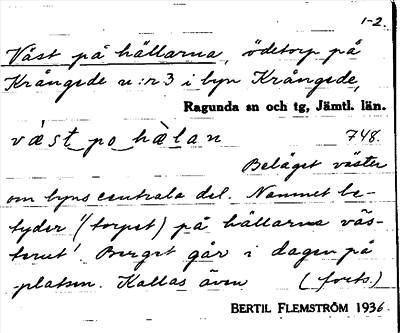 1-2.
Väst på hällarna, ödetorp på
Krångede n:r 3 i byn Krångede,
Ragunda sn och tg, Jämtl. län.
vä́st po hä̀lan 748.
Beläget väster
om byns centrala del. Namnet be-
tyder '(torpet) på hällarna väs-
terut'. Berget går i dagen på
platsen. Kallas även (forts.)
BERTIL FLEMSTRÖM 1936.